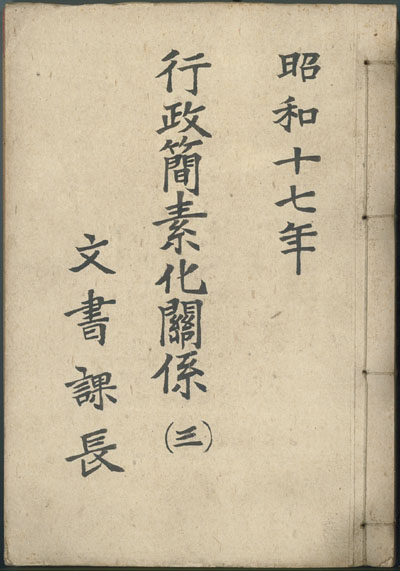 昭和十七年
行政簡素化關係(三)
文書課長